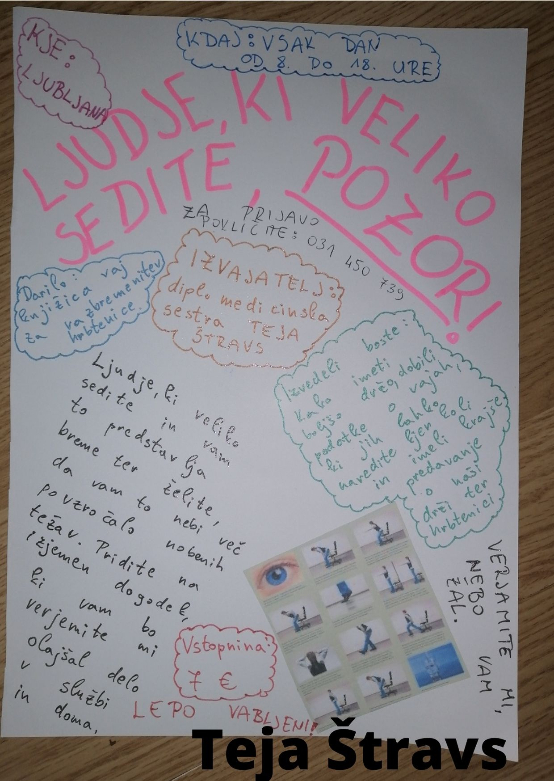 KJE:
LJUBLJANA
KDAJ: VSAK DAN
OD 8. DO 18. URE
LJUDJE, KI VELIKO
SEDITE, POZOR!
ZA PRIJAVO
POKLIČITE: 031 450 739
Darilo: vaj
knjižica
za razbremenitev
hrbtenice.
IZVAJATELJ:
diplo. medicinska
sestra TEJA
ŠTRAVS
Izvedeli boste:
Kako imeti
boljšo držo, dobili
podatke o vajah,
ki jih lahko
naredite kjer koli
in imeli krajše
predavanje
o naši
drži ter
hrbtenici
Ljudje, ki veliko
sedite in vam
to predstavlja
breme ter želite,
da vam to nebi več
povzročalo nobenih
težav. Pridite na
izjemen dogodek,
ki vam bo
verjemite mi
olajšal delo
v službi
in doma.
VERJAMITE MI,
NEBO VAM
ŽAL.
Vstopnina:
7 €
LEPO VABLJENI!
Teja Štravs